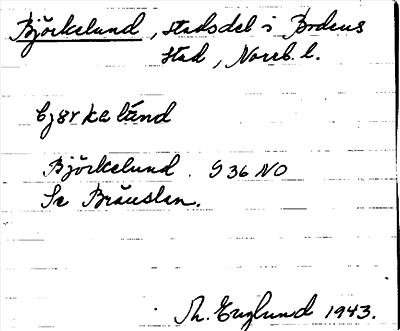 Björkelund, stadsdel i Bodens
stad, Norrb. l.
Björkelund. S 36 NO
Se Brännan.
Th. Englund 1943.